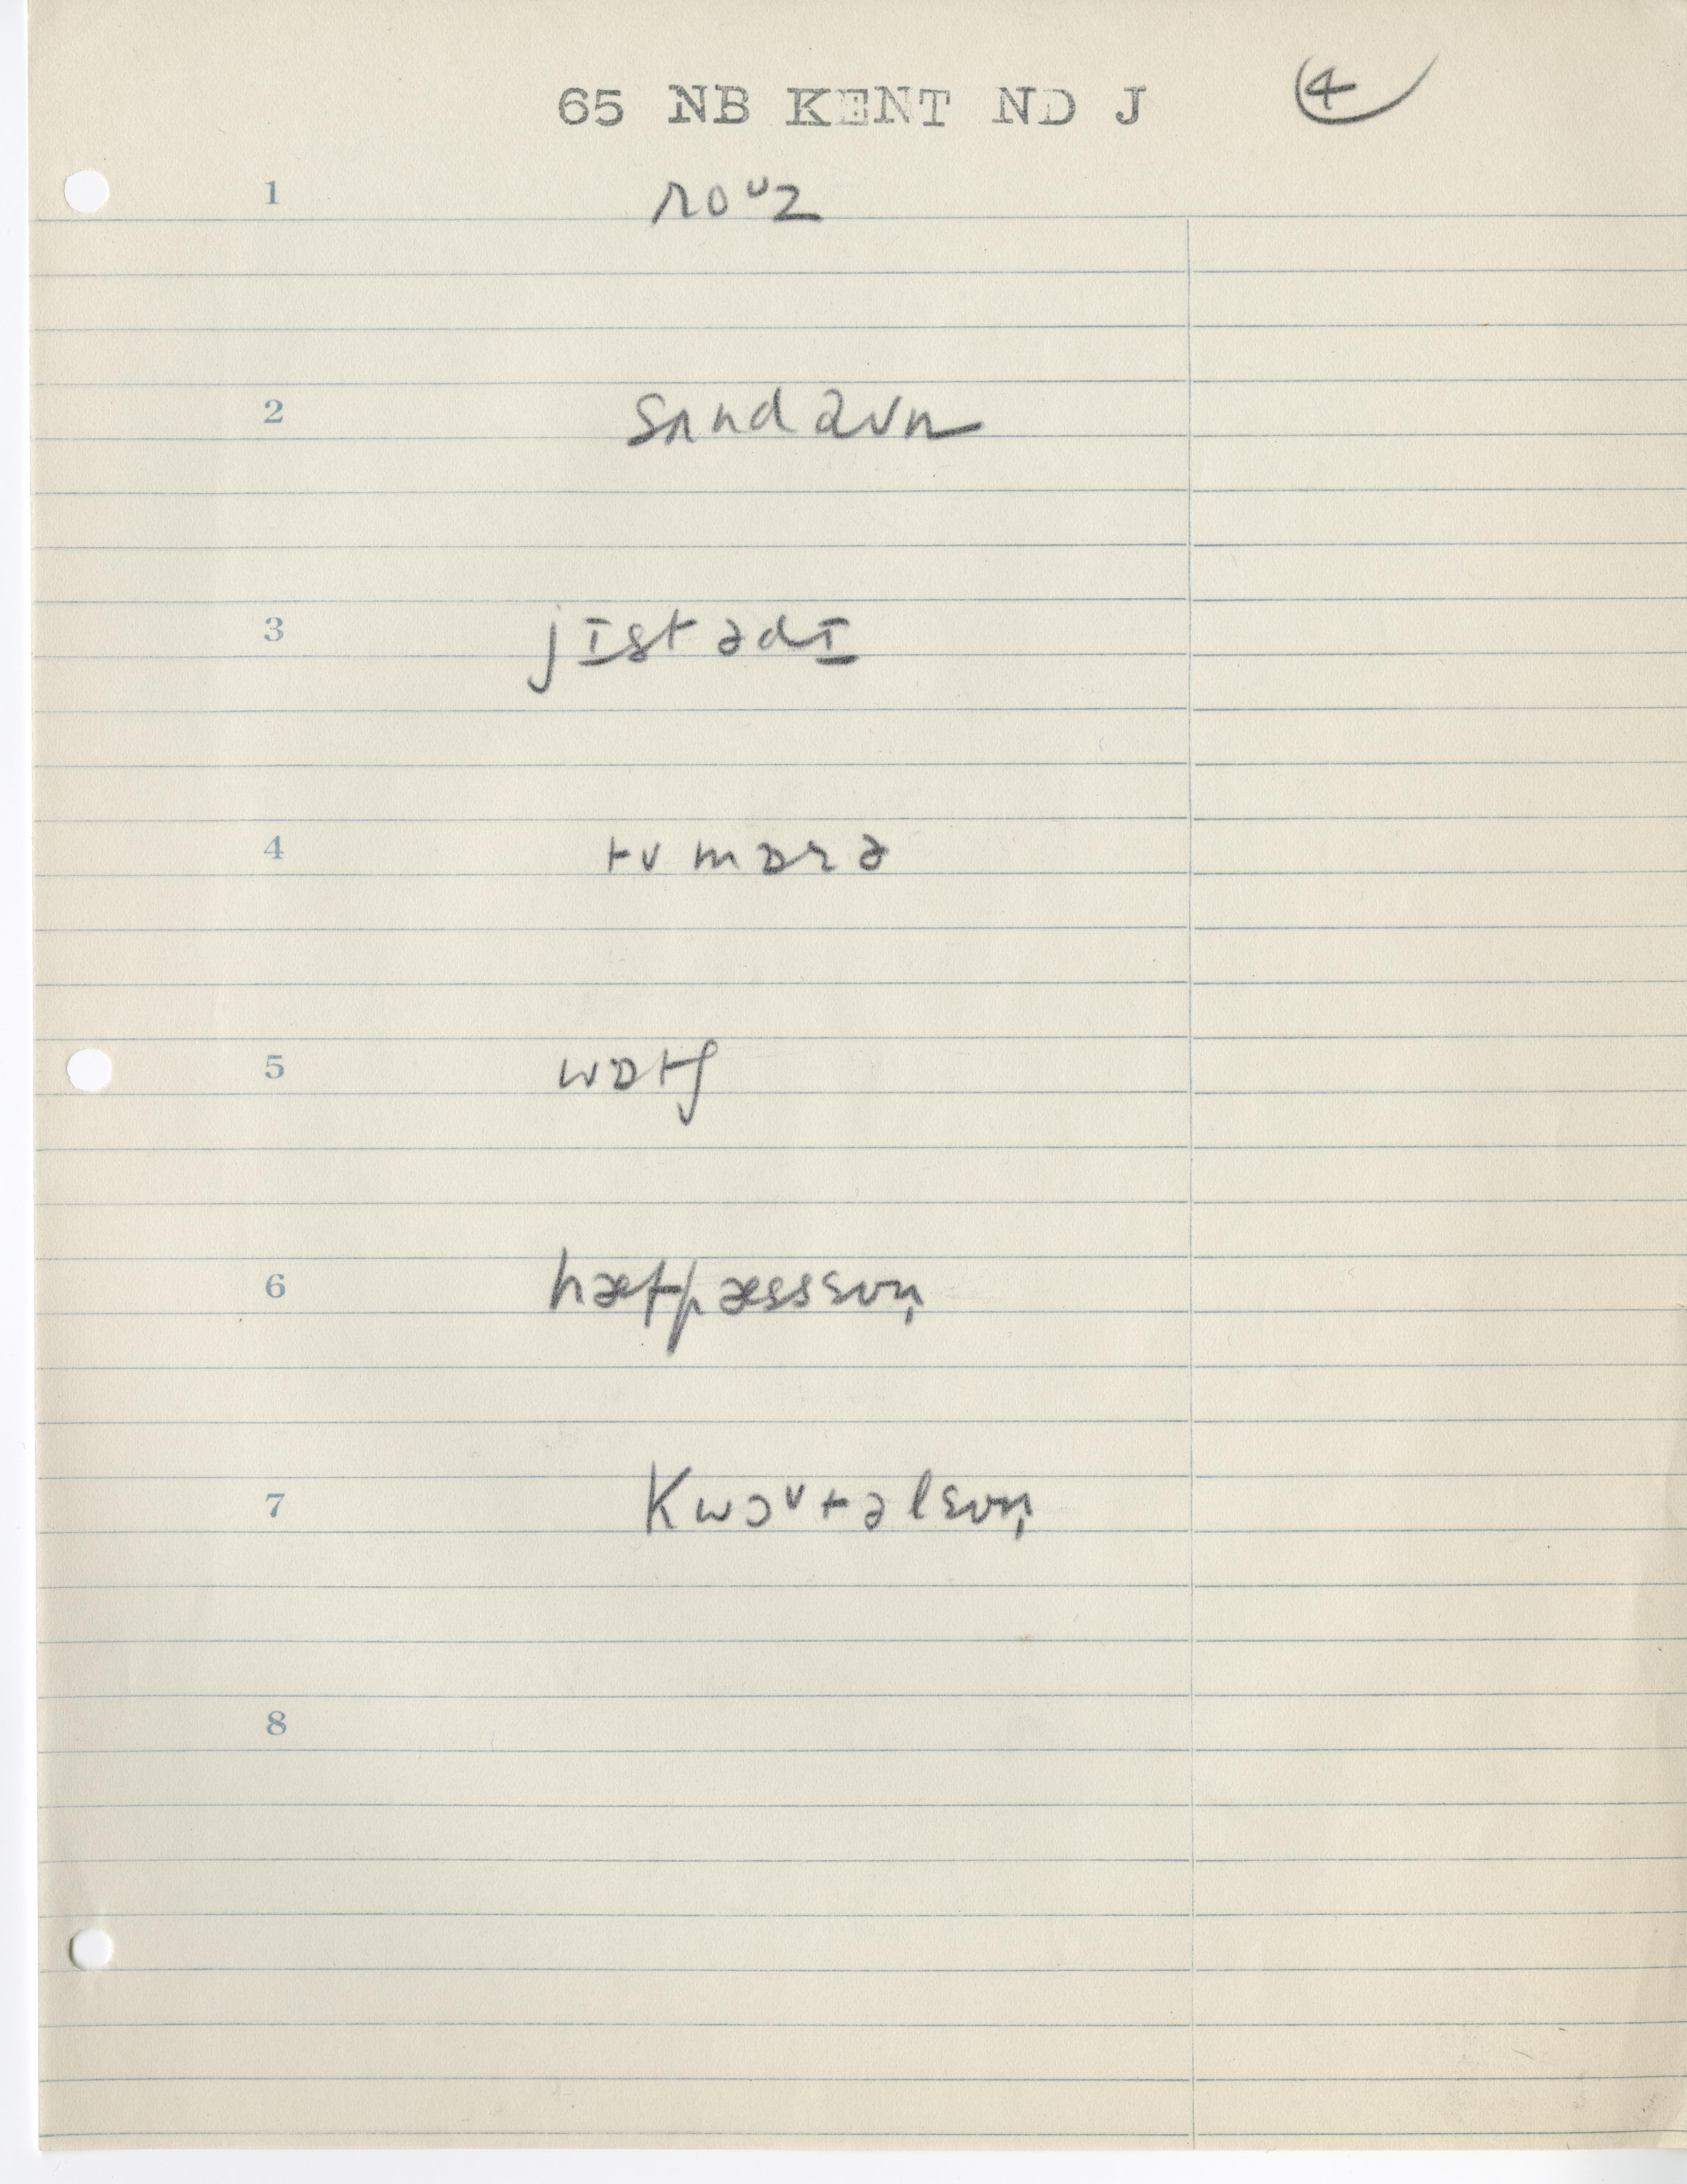 65 NB KENT ND J 4
1 roᴜz
2 sʌndaʊn
3 jɪstədɪ
4 tʊmɒrə
5 wɒtʃ
6 hætpæssɛvn̩
7 Kwɔᵛtəlɛvn̩
8